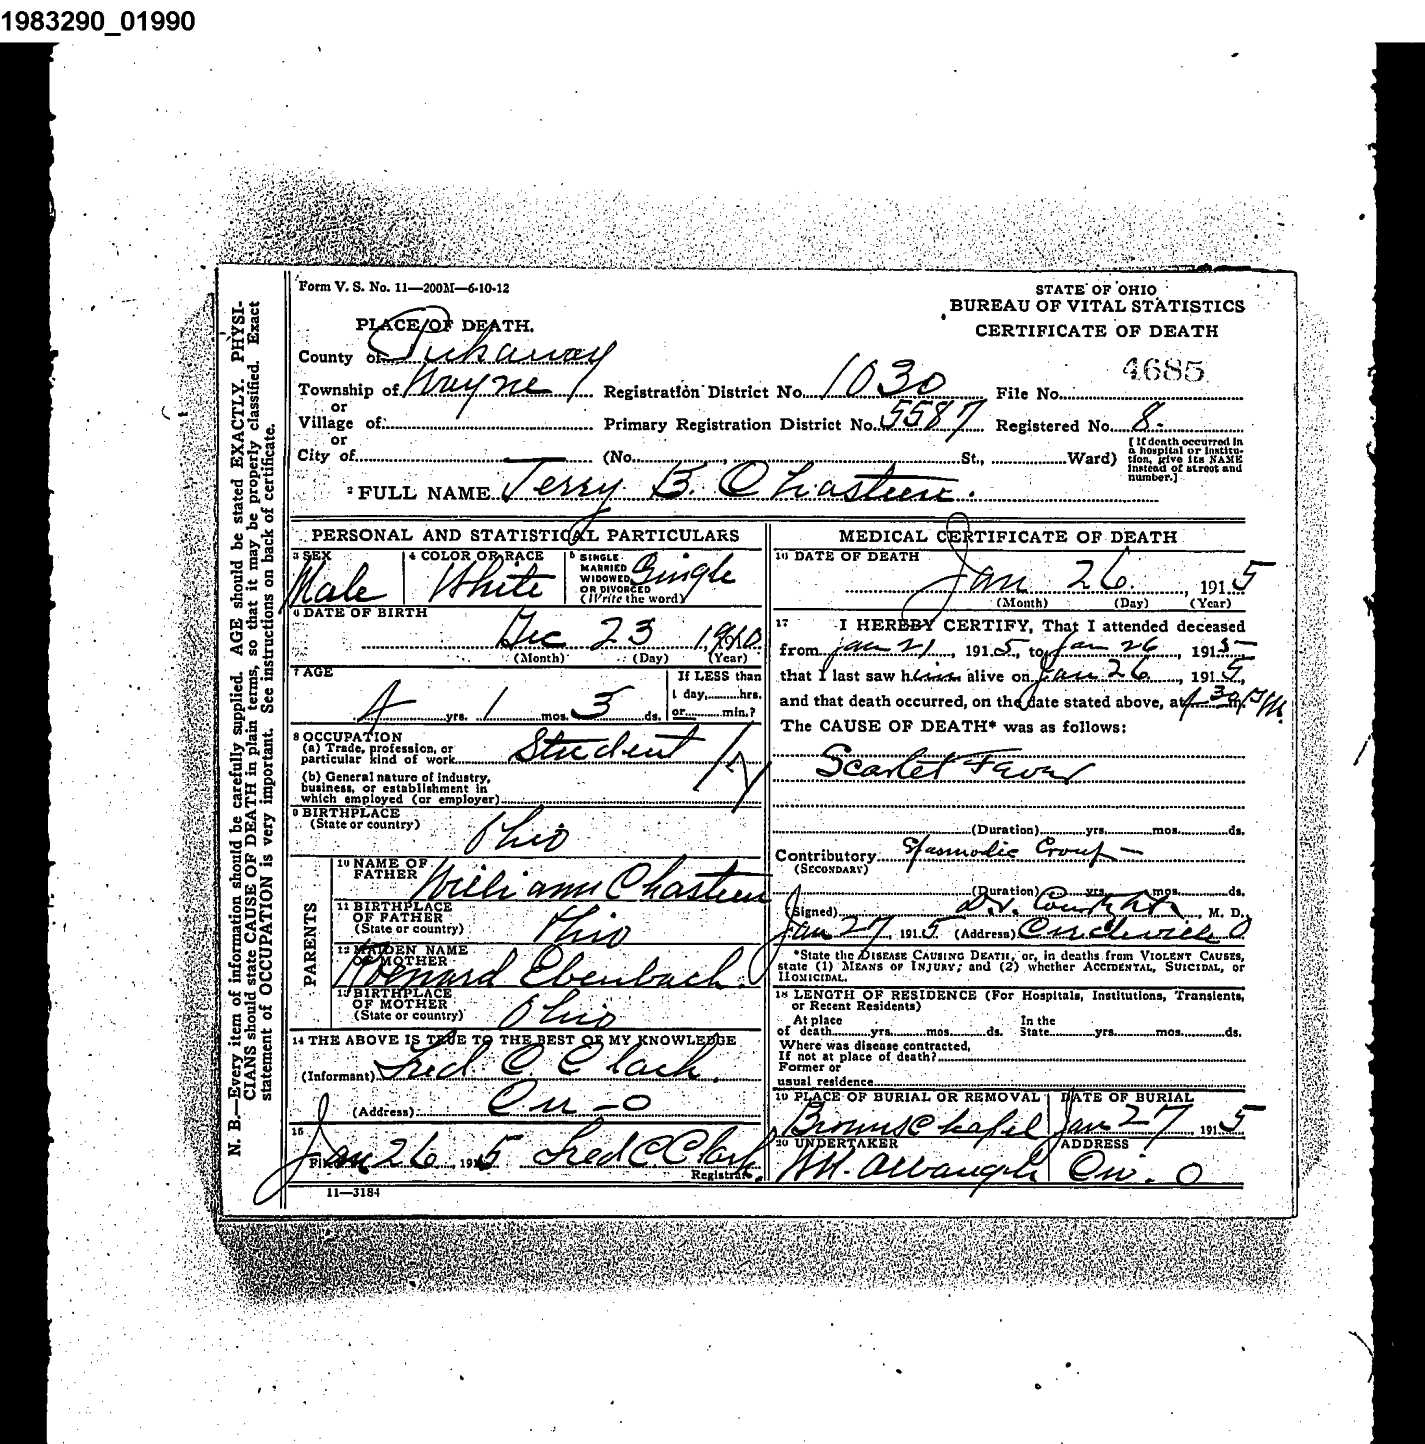 1983290_01990
Form V. S. No. 11—200M—6-10-12
STATE OF OHIO
BUREAU OF VITAL STATISTICS
CERTIFICATE OF DEATH
PLACE OF DEATH.
County of Pickaway
4685
Township of Wayne Registration District No. 1030 File No.
or
Village of Primary Registration District No. 5587 Registered No. 8.
or
City of (No. , St., Ward)
[If death occurred in a hospital or institution, give its NAME instead of street and number.]
2 FULL NAME Terry B. Chasteen.
PERSONAL AND STATISTICAL PARTICULARS
3 SEX Male
4 COLOR OR RACE White
5 SINGLE MARRIED WIDOWED OR DIVORCED (Write the word) Single
6 DATE OF BIRTH
Dec 23 1910
(Month) (Day) (Year)
7 AGE
If LESS than
1 day, hrs.
or min.?
4 yrs. 1 mos. 3 ds.
8 OCCUPATION
(a) Trade, profession, or
particular kind of work Student
(b) General nature of industry,
business, or establishment in
which employed (or employer)
9 BIRTHPLACE
(State or country) Ohio
PARENTS
10 NAME OF
FATHER William Chasteen
11 BIRTHPLACE
OF FATHER
(State or country) Ohio
12 MAIDEN NAME
OF MOTHER Ebenbach
13 BIRTHPLACE
OF MOTHER
(State or country) Ohio
14 THE ABOVE IS TRUE TO THE BEST OF MY KNOWLEDGE
(Informant) Fred C Clark.
(Address) Cir - O
15
Filed Jan 26, 1915 Fred C Clark
Registrar.
11—3184
MEDICAL CERTIFICATE OF DEATH
16 DATE OF DEATH
Jan 26, 1915
(Month) (Day) (Year)
17 I HEREBY CERTIFY, That I attended deceased
from Jan 21, 1915, to Jan 26, 1915
that I last saw him alive on Jan 26, 1915,
and that death occurred, on the date stated above, at 4 30 P.M.
The CAUSE OF DEATH* was as follows:
Scarlet Fever
(Duration) yrs. mos. ds.
Contributory Spasmodic Croup —
(SECONDARY)
(Duration) yrs. mos. ds.
(Signed) M. D.
Jan 27, 1915 (Address) Circleville O
*State the DISEASE CAUSING DEATH, or, in deaths from VIOLENT CAUSES,
state (1) MEANS OF INJURY; and (2) whether ACCIDENTAL, SUICIDAL, or
HOMICIDAL.
18 LENGTH OF RESIDENCE (For Hospitals, Institutions, Transients,
or Recent Residents)
At place In the
of death yrs. mos. ds. State yrs. mos. ds.
Where was disease contracted,
If not at place of death?
Former or
usual residence
19 PLACE OF BURIAL OR REMOVAL DATE OF BURIAL
Browns Chapel Jan 27, 1915
20 UNDERTAKER ADDRESS
Cir. O
N. B.—Every item of information should be carefully supplied. AGE should be stated EXACTLY. PHYSI-
CIANS should state CAUSE OF DEATH in plain terms, so that it may be properly classified. Exact
statement of OCCUPATION is very important. See instructions on back of certificate.